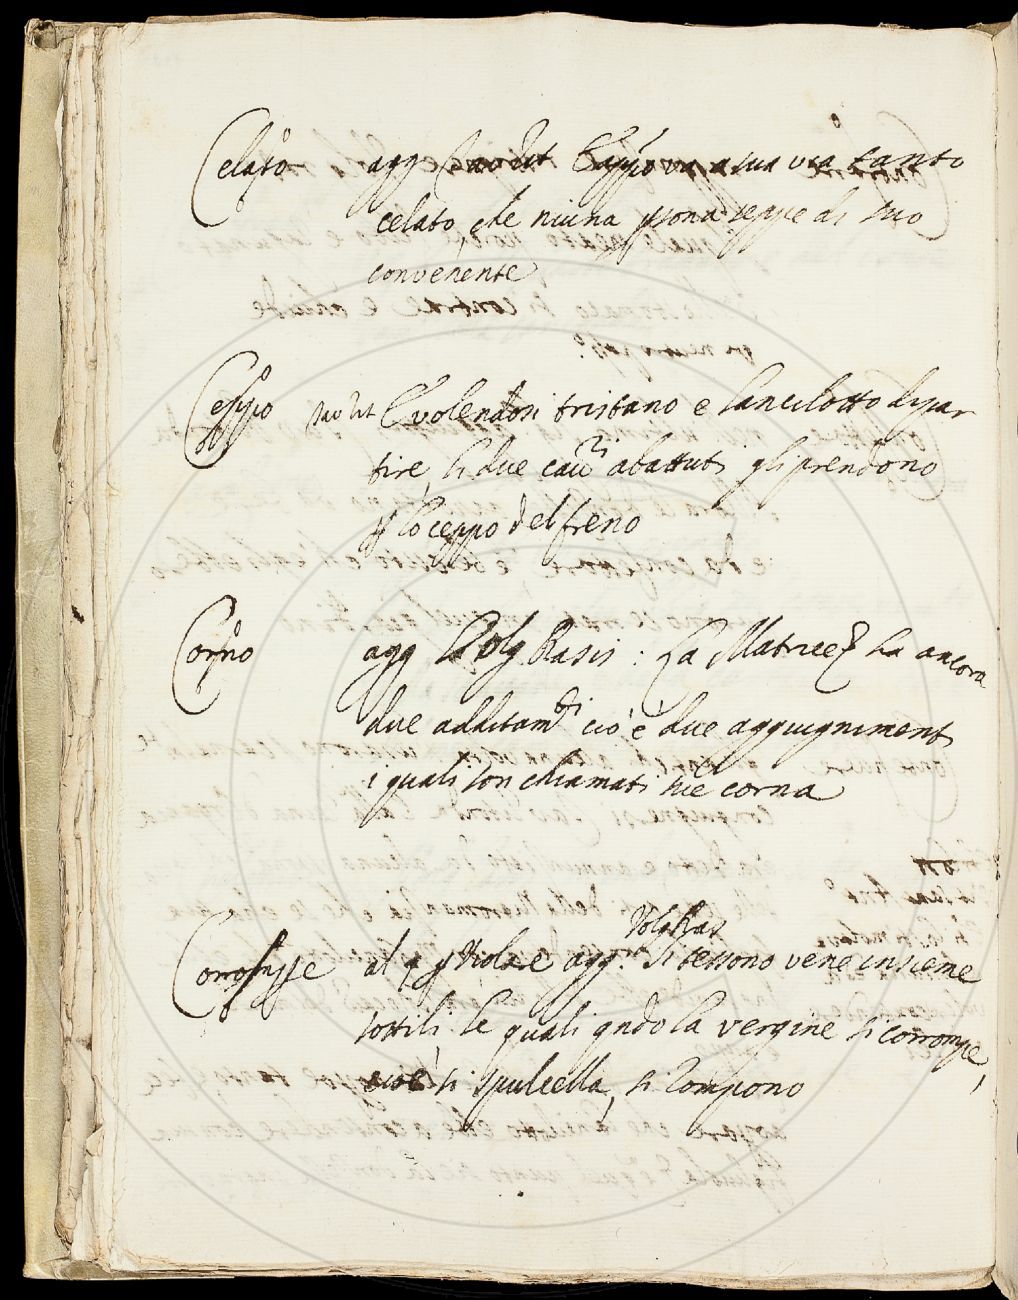 Celato agg. Tav. Rit. E appo va a sua via tanto
celato, che niuna psona seppe di suo
convenente
Ceppo Tav. Rit. E volendosi tristano e lancilotto dipar
tire, li due cavri abattuti gli prendono
p lo ceppo del freno
Corno agg. Volg. Rasis: La Matrice ha ancora
due additamti cio è due aggiugnimenti
i quali son chiamati sue corna
Volg. Ras.
Corrompe al § p Violare agg. Si tessono vene insieme
sottili le quali qndo la vergine si corrompe,
cioè si spulcella, si rompono